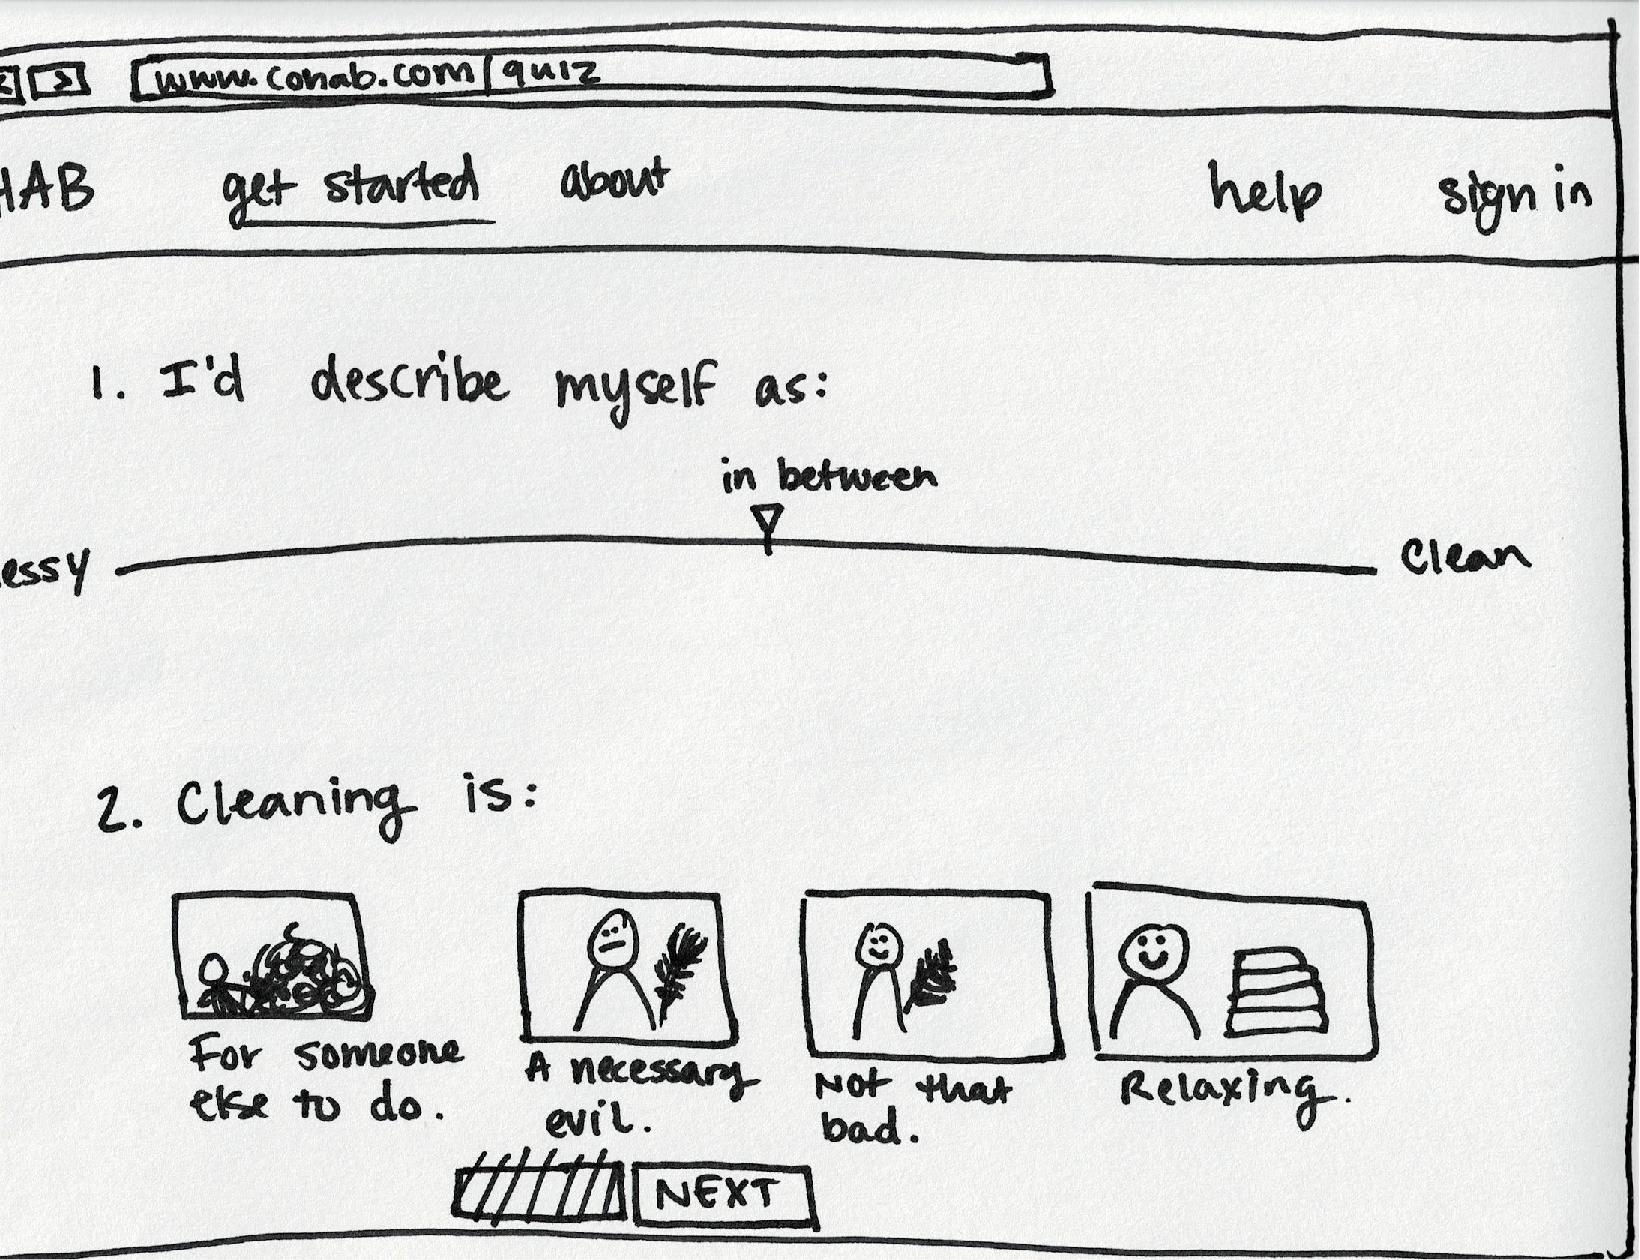 www.conab.com/quiz
HAB get started about help sign in
1. I'd describe myself as:
in between
essy clean
2. Cleaning is:
For someone else to do.
A necessary evil.
Not that bad.
Relaxing.
NEXT